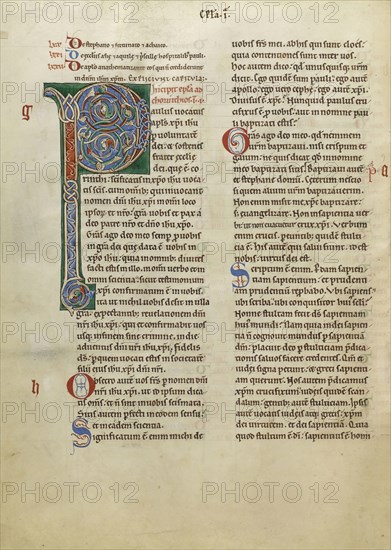 EPLA·I·
De stephano & fortunato & achaico.
inde aquila & priscilla
in dm̅ ih̅m xp̅m. EXPLICIUNT CAPITULA·
Incipit ep̅la ad
chorinthios·I·
Paulus vocatus
apostolus xp̅i ih̅u
p voluntatē
dei; & sostenes
frater ecclie
dei; que ē co
rinthi: sanctificatis in xp̅o ih̅u voca
tis scīs. cum omīb; qui invocant
nomen dn̅i ih̅u xp̅i. in omī loco
ipsoꝝ & nr̅o: gr̅a vobis & pax a
deo patre nr̅o & dn̅o ih̅u xp̅o.
Gr̅as ago deo meo semp p vobis
in gr̅a dei que data ē vobis in
xp̅o ih̅u. quia in omīb; divites
facti estis in illo. in omī verbo & in
omī scientia: sicut testimonium
xp̅i confirmatum est in vobis.
ita ut nichil vobis desit in ulla
gr̅a. expectantib; revelationem dn̅i
nr̅i ih̅u xp̅i. qui & confirmabit vos
usq; in finem sine crimine. in die
adventus dn̅i nr̅i ih̅u xp̅i. Fidelis
ds̅ p quem vocati estis in societatē
filii eius ih̅u xp̅i dn̅i nr̅i.
Obsecro autē vos fr̅s p nomen dn̅i
nr̅i ih̅u xp̅i. ut id ipsum dica
tis om̅s. & n̅ sint in vobis scismata.
Sitis autem pfecti in eodem sensu:
& in eadem scientia.
Significatum ē enim michi de
vobis fr̅s mei. ab his qui sunt cloes.
quia contentiones sunt inter vos.
Hoc autem dico: qd̅ unusquisq; vr̅m
dicit. Ego quidē sum pauli: ego autē
apollo. ego vero cephe; ego autē xp̅i.
Divisus ē xp̅s? Nunquid paulus cru
cifixus ē p vobis: aut in nomine pau
li baptizati estis?
Gr̅as ago deo meo. qd̅ neminem
vr̅m baptizavi. nisi crispum &
gaium. ne quis dicat qd̅ in nomine
meo baptizati estis. Baptizavi autē
& stephane domū. Ceterum nescio
si quem alium vr̅m baptizaverim.
Non enim misit me. xp̅s baptizare:
s; evangelizare. Non in sapientia ver
bi: ut n̅ evacuetur crux xp̅i. Verbum
enim crucis. pereuntib; quidē stulticia
ē: his autē qui salvi fiunt. id est no
bis virtus dei est.
Scriptum ē enim. Pdam sapien
tiam sapientium: & prudentiam
prudentium reprobabo. Ubi sapiens?
ubi scriba? ubi conquisitor huius scl̅i?
Nonne stultam fecit ds̅ sapientiam
huius mundi? Nam quia in dei sapien
tia n̅ cognovit mundus p sapientiam
dm̅: placuit deo p stulticiam pdica
tionis salvos facere credentes. Quo
niam & iudei signa petunt. & greci sapienti
am querunt. Nos autem pdicamus
xp̅m crucifixum: iudeis quidē scan
dalum. gentib; autē stulticiam. Ipsis
autē vocatis iudeis atq; grecis: xp̅m
dei virtutem. & dei sapientiam. Quia
quod stultum ē dī: sapientius ē homi